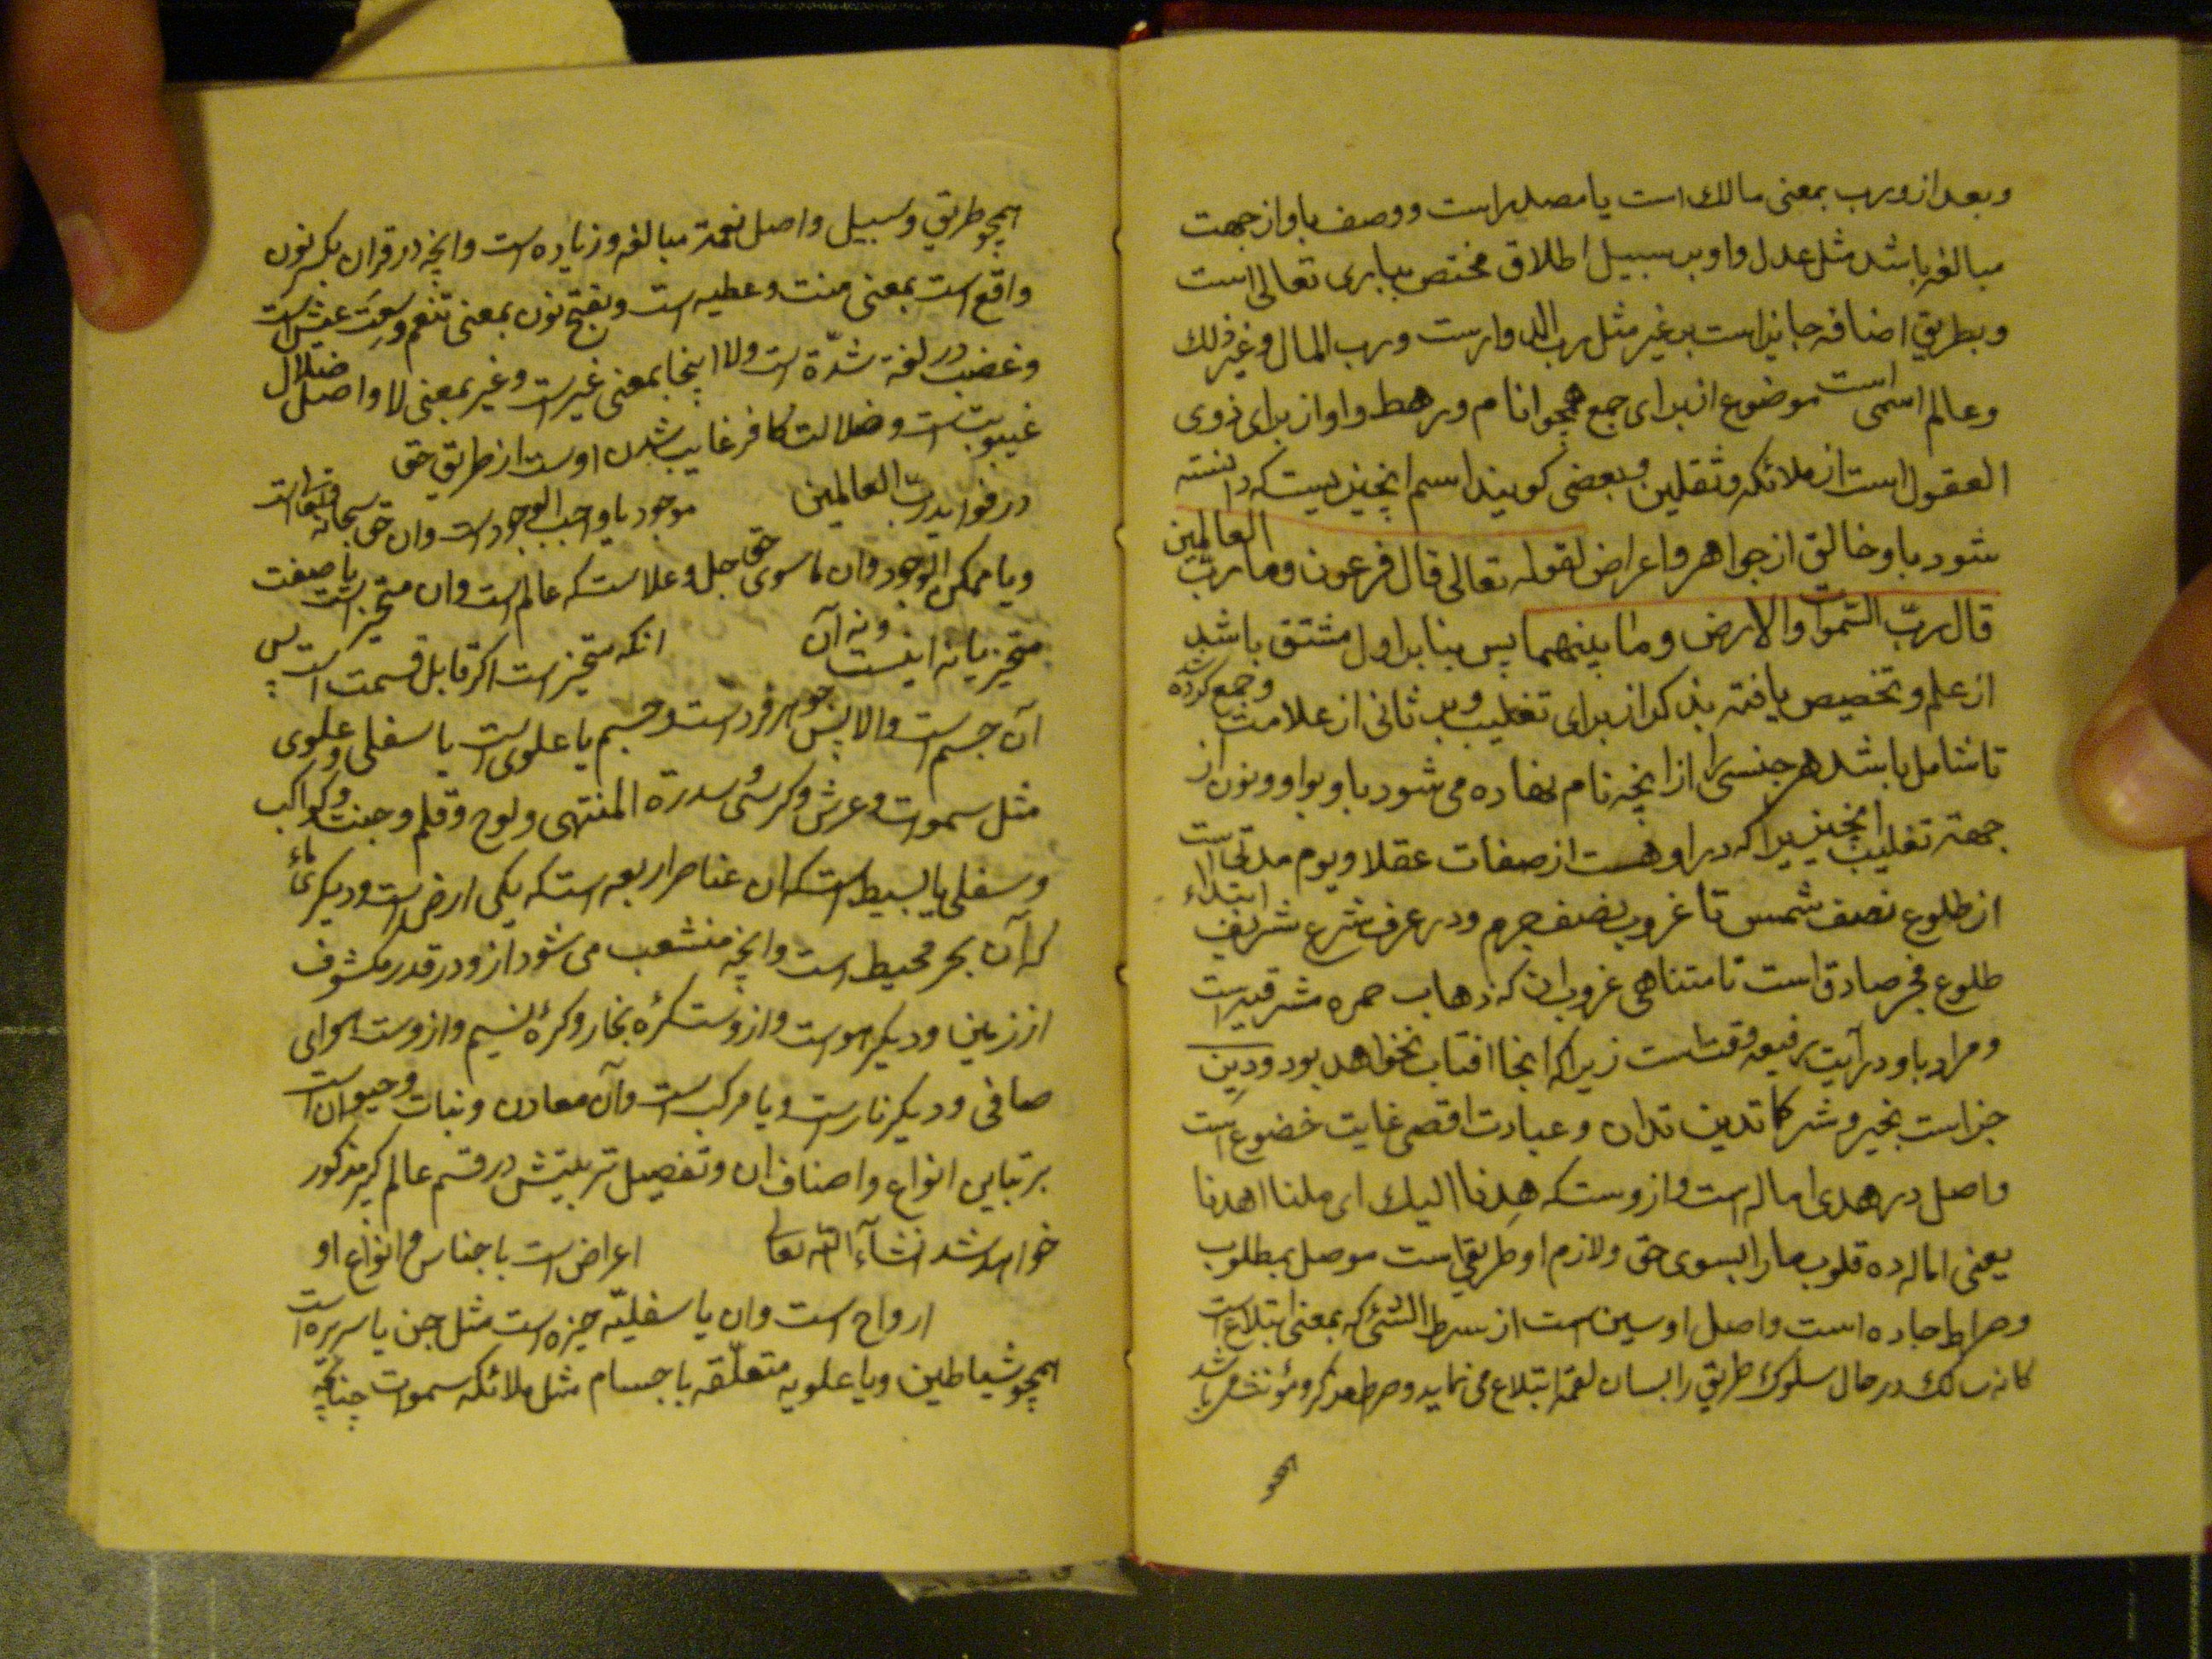 وبعد ازو رب بمعنی مالك است یا مصدر است ووصف باو از جهت
مبالغه باشد مثل عدل واو بر سبیل اطلاق مختص بباری تعالی است
وبطریق اضافه جایز است بر غیر مثل رب الدار ورب المال وغیر ذلك
وعالم اسمی است موضوع از برای جمع همچو انام ورهط واو از برای ذوی
العقول است از ملائکه وثقلین وبعضی کویند اسم انچیزیست که دانسته
شود باو خالق از جواهر واعراض لقوله تعالی قال فرعون وما رب العالمین
قال رب السموات والارض وما بینهما پس بنابر اول مشتق باشد
از علم وتخصیص یافته بذکر از برای تغلیب وبر ثانی از علامت وجمع کرده شد
تا شامل باشد هر جنسی را از انچه نام نهاده می شود باو وبواو ونون از
جهته تغلیب انچیزیرا که در او هست از صفات عقلا ویوم مدتی است
از طلوع نصف شمس تا غروب نصف جرم ودر عرف شرع شریف ابتداء
طلوع فجر صادق است تا متناهی غروب ان که ذهاب حمره مشرقیه است
ومراد باو در آیت رفیعه وقتست زیرا که انجا افتاب نخواهد بود ودین
جز است بخیر وشر کما تدین تدان وعبادت اقصی غایت خضوع است
واصل در هدی اماله است وازوست که هدنا الیك ای ملنا اهدنا
یعنی اماله ده قلوب ما را بسوی حق ولازم او طریقیست موصل بمطلوب
وصراط جاده است واصل او سین است از سرط الشئ که بمعنی ابتلاع است
کانه سالك در حال سلوك طریق را بسان لقمه ابتلاع می نماید وصراط مذکر ومؤنث می باشد
همچو
همچو طریق وسبیل واصل نعمة مبالغه وزیاده است وانچه در قران بکسر نون
واقع است بمعنی منت وعطیه است وبفتح نون بمعنی تنعم وسعت عیش است
وغضب در لغة شدة است ولا اینجا بمعنی غیر است وغیر بمعنی لا واصل ضلال
غیبوبت است وضلالت کافر غایب شدن اوست از طریق حق
در فواید رب العالمین موجود یا واجب الوجود است وان حق سبحانه وتعالی است
ویا ممکن الوجود وان ما سوی حق جل وعلاست که عالم است وان متحیز است یا صفت
متحیز یا نه اینست ونه آن انکه متحیز است اکر قابل قسمت است پس
آن جسم است والا پس جوهر فرد است وجسم یا علوی است یا سفلی وعلوی
مثل سموت وعرش وکرسی وسدرة المنتهی ولوح وقلم وجنت وکواکب
وسفلی یا بسیط است که ان عناصر اربعه است که یکی ارض است ودیکر ماء
که آن بحر محیط است وانچه منشعب می شود ازو در قدر مکشوف
از زمین ودیکر هوست وازوست کرۀ بخار وکرۀ نسیم وازوست هوای
صافی ودیکر نار است ویا مرکب است وآن معادن ونبات وحیوان است
بر تباین انواع واصناف ان وتفصیل تربیتش در قسم عالم کبر مذکور
خواهد شد انشآء الله تعالی اعراض است باجناس وانواع او
ارواح است وان یا سفلیه خیره است مثل جن یا سریره است
همچو شیاطین ویا علویه متعلقه باجسام مثل ملائکه سموات چنانچه